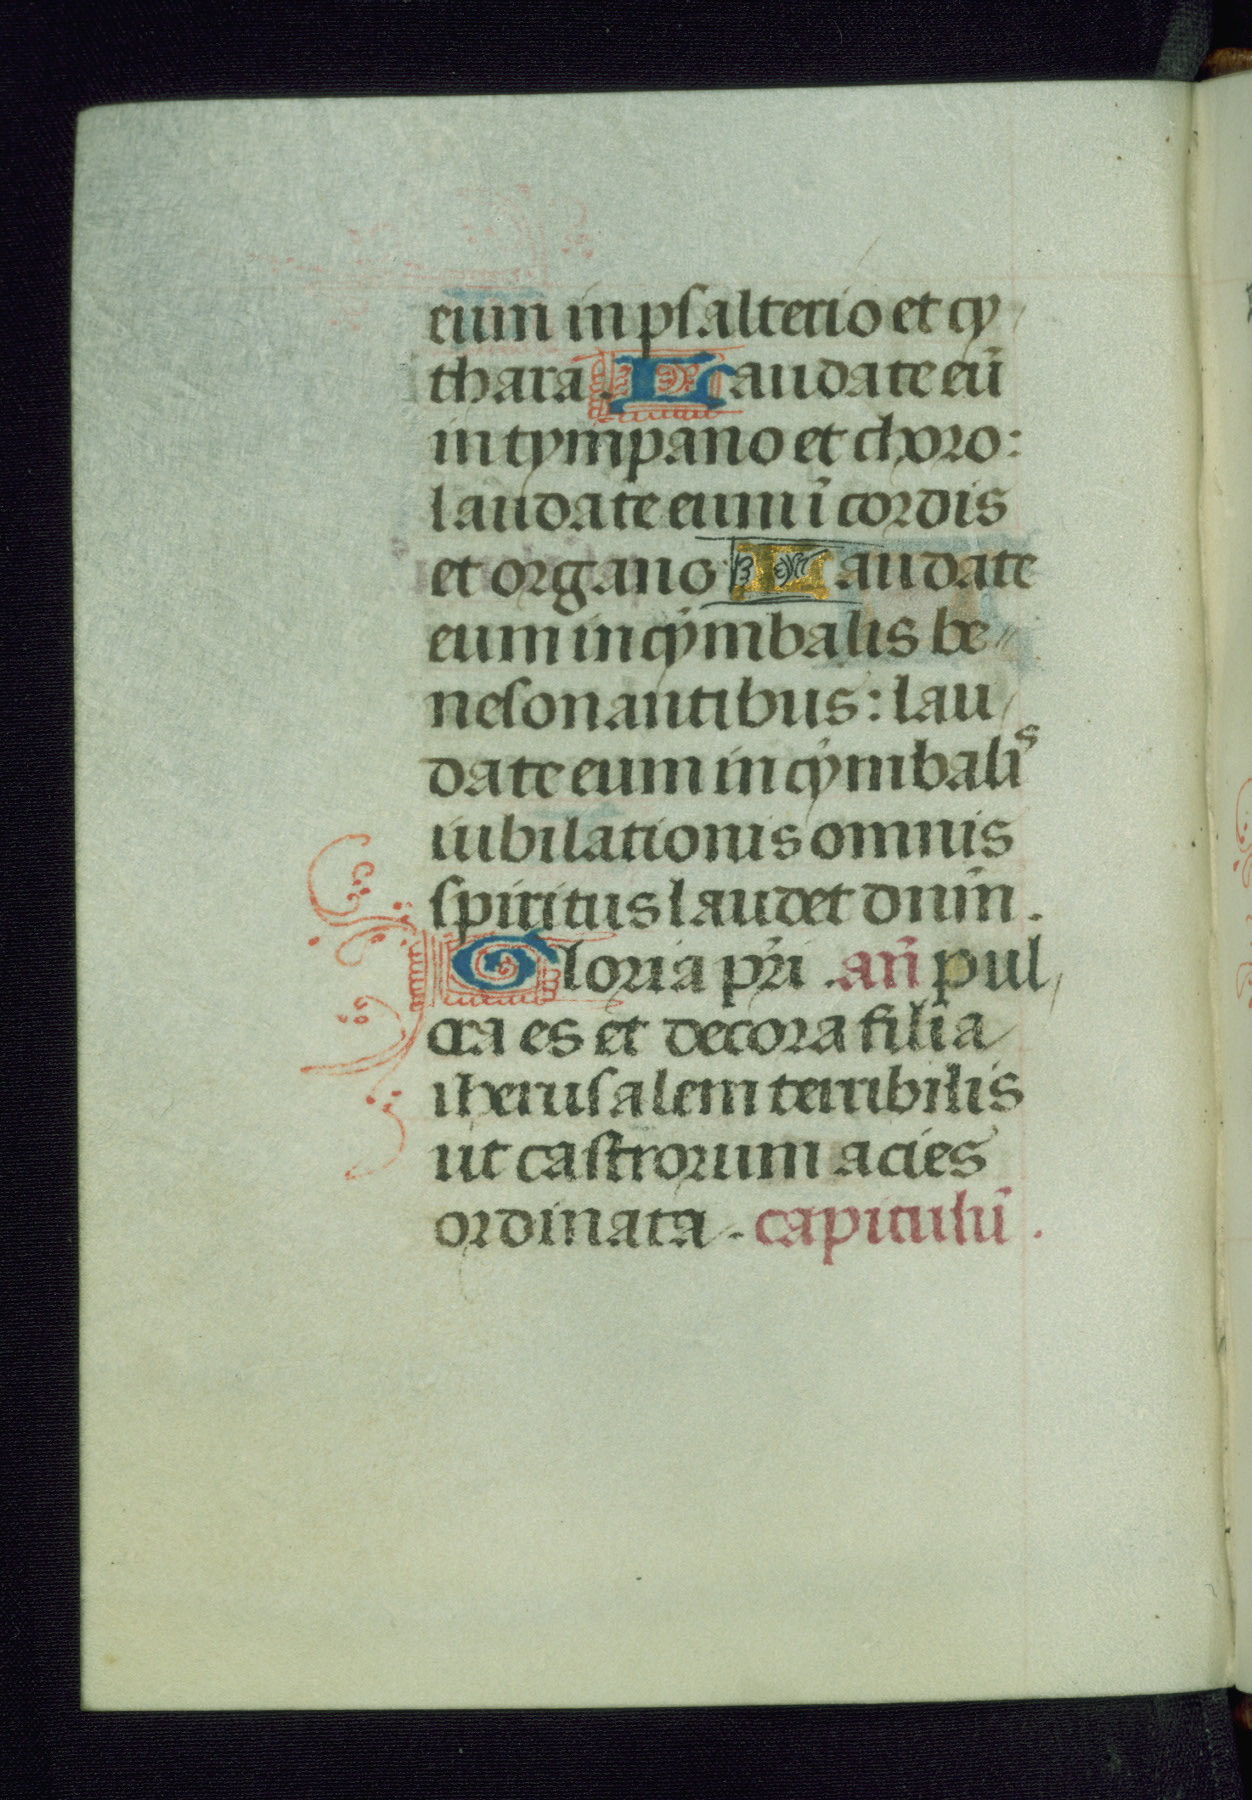 eum in psalterio et cy
thara. Laudate eū
in tympano et choro:
laudate eum ī cordis
et organo. Laudate
eum in cymbalis be
nesonantibus: lau
date eum in cymbalis
iubilationis omnis
spiritus laudet dnm̄.
Gloria pr̄i. an̄ pul
cra es et decora filia
iherusalem terribilis
ut castrorum acies
ordinata. capitulū.